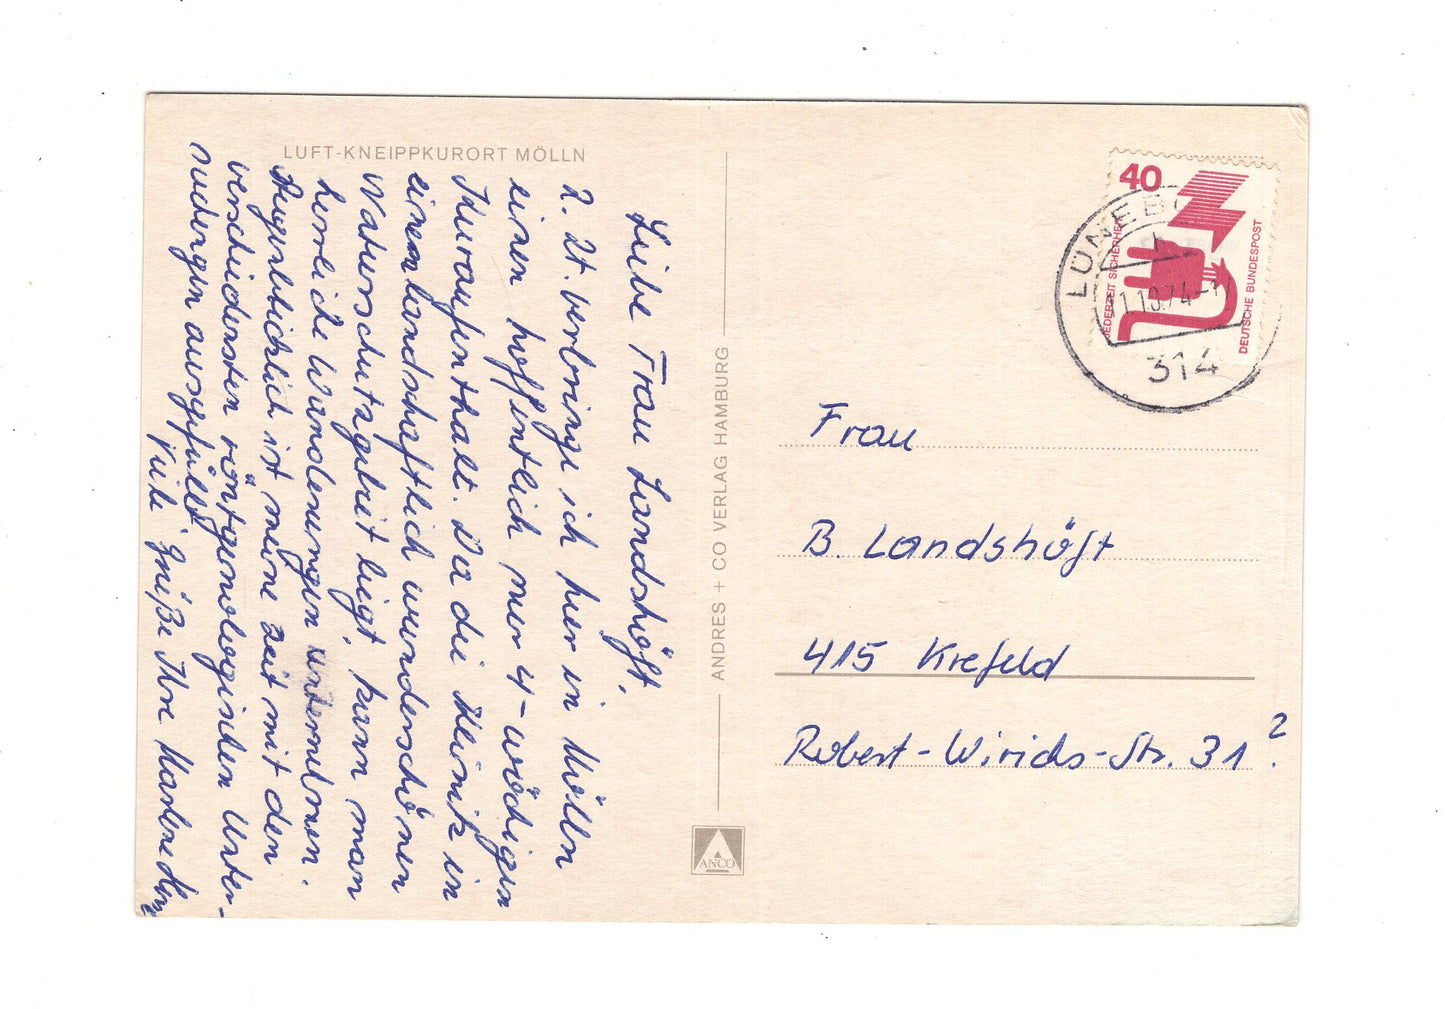 LUFT-KNEIPPKURORT MÖLLN
Liebe Frau Landshöft,
z. Zt. verbringe ich hier in Mölln
einen hoffentlich nur 4-wöchigen
Kuraufenthalt. Da die Klinik in
einem landschaftlich wunderschönen
Naturschutzgebiet liegt, kann man
herrliche Wanderungen unternehmen.
Augenblicklich ist meine Zeit mit den
verschiedensten röntgenologischen Unter-
suchungen ausgefüllt.
Viele Grüße Ihre
ANDRES + CO VERLAG HAMBURG
ANCO
40
JEDERZEIT SICHERHEIT
DEUTSCHE BUNDESPOST
LÜNEB
10.74
314
Frau
B. Landshöft
415 Krefeld
Robert-Wirichs-Str. 31 ?